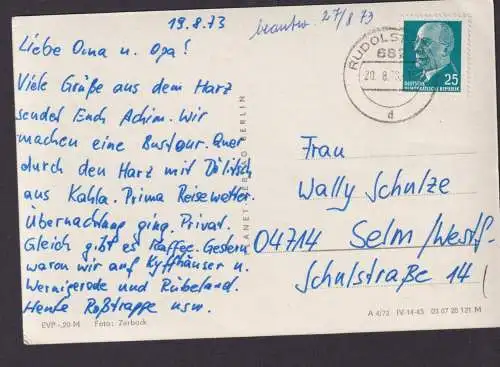 19.8.73
beantw. 27/8 73
Liebe Oma u. Opa!
Viele Grüße aus dem Harz
sendet Euch Achim. Wir
machen eine Bustour. Quer
durch den Harz mit
aus Kahla. Prima Reisewetter.
Übernachtung ging. Privat.
Gleich gibt es Kaffee. Gestern
waren wir auf Kyffhäuser u.
Wernigerode und Rübeland.
Heute Roßtrappe usw.
EVP -,20 M Foto: Zerback
PLANET-VERLAG BERLIN
RUDOLST
682
20.8.73
d
25
DEUTSCHE
DEMOKRATISCHE REPUBLIK
Frau
Wally Schulze
04714 Selm/Westf
Schulstraße 14
A 4/73 IV-14-45 03 07 20 121 M